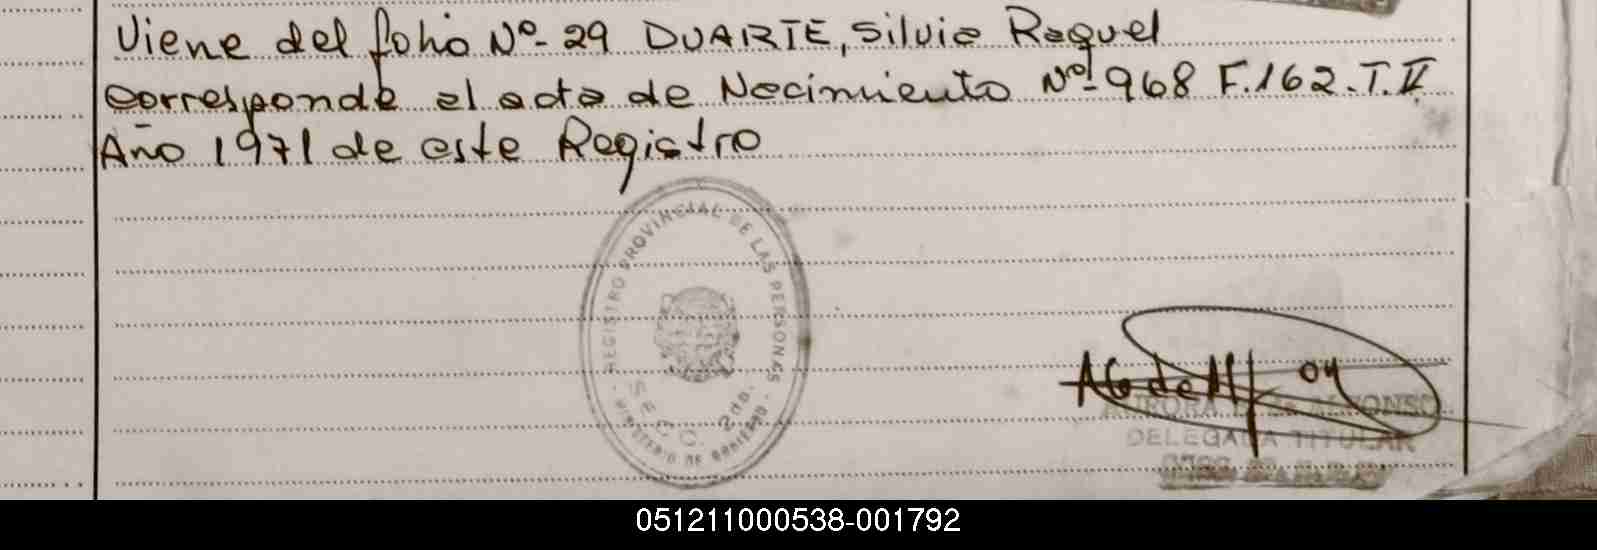 Viene del folio Nº- 29 DUARTE, Silvia Raquel
corresponde al acta de Nacimiento Nº- 968 F.162.T.II
Año 1971 de este Registro
REGISTRO PROVINCIAL DE LAS PERSONAS
SECC. 2da.
MINISTERIO DE GOBIERNO
AURORA ALFONSO
DELEGADA TITULAR
051211000538-001792